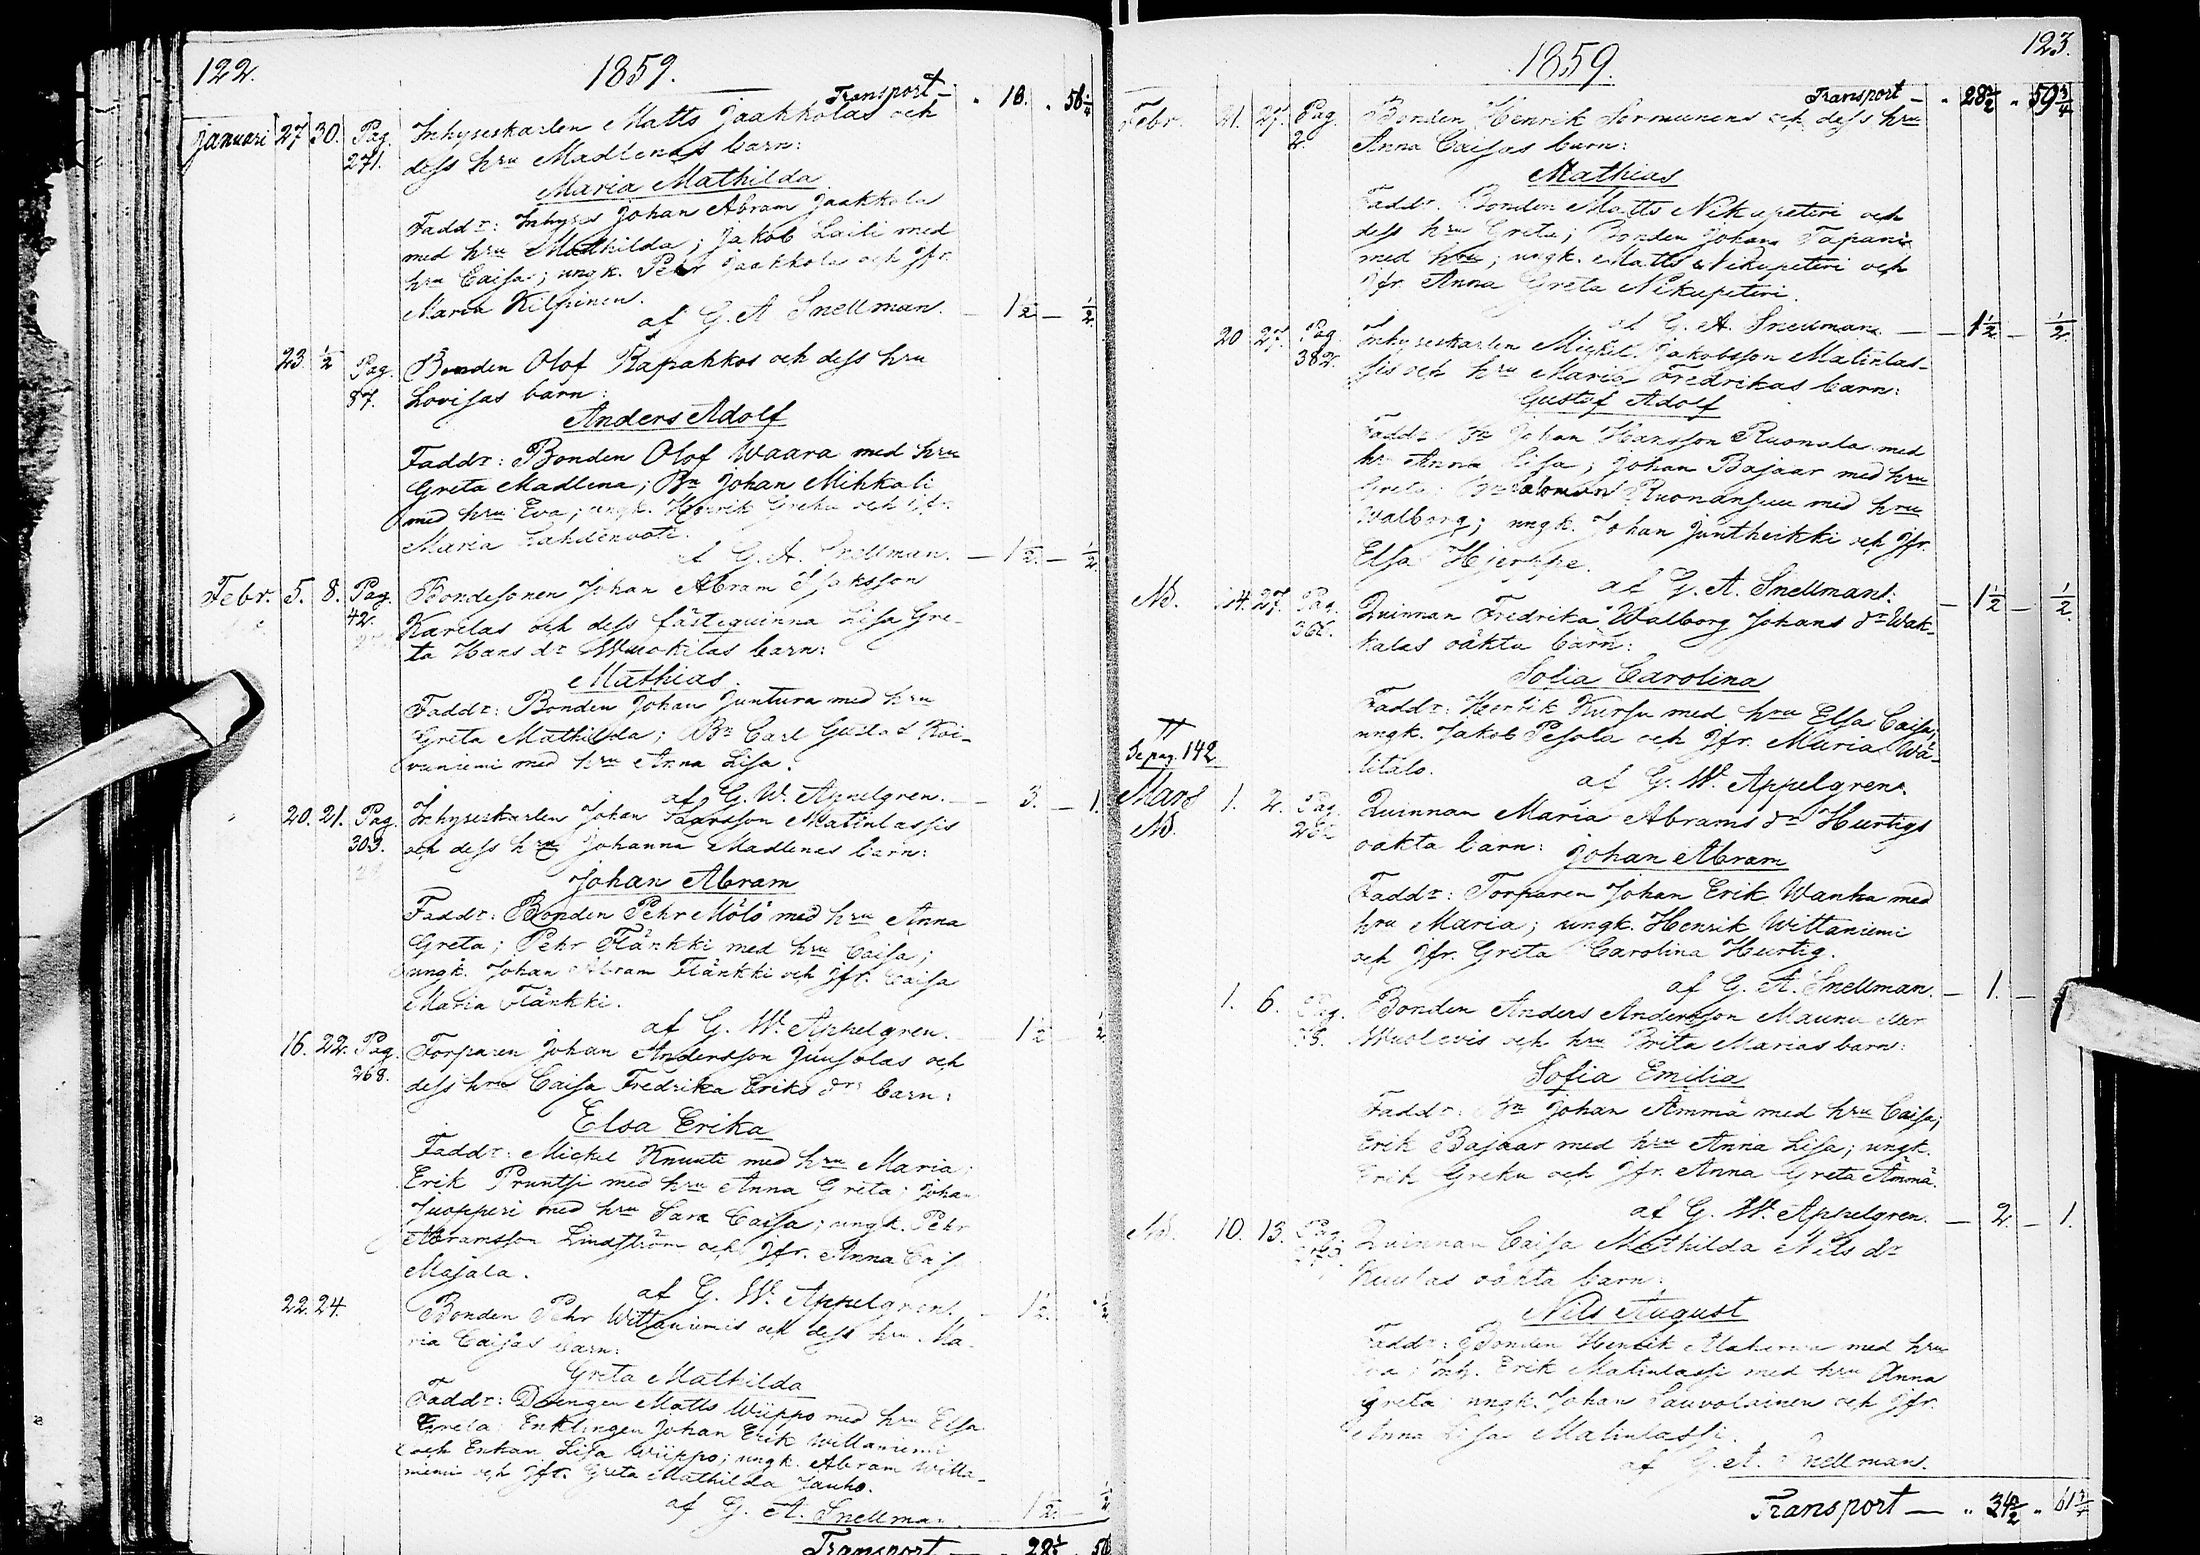 122.
1859.
Transport — " 18. " 58 1/4
Januari 27 30. Pag. 271. Inhyseskarlen Matts Jaakkolas och
dess hru Madlenas barn:
Maria Mathilda
Faddr: Inhyses Johan Abram Jaakkola
med hru Mathilda; Jakob Laili med
hru Caisa; ungk. Pehr Jaakkola och Jfr.
Maria Kilpinen.
af G. A Snellman. — 1 1/2 — 1/2.
23 1/2 Pag. 87. Bonden Olof Kapakkos och dess hru
Lovisas barn:
Anders Adolf
Faddr: Bonden Olof Waara med hru
Greta Madlena; Bn Johan Mihkali
med hru Eva; ungk. Henrik Greku och Jfr.
Maria
af G. A. Snellman. — 1 1/2. — 1/2
Febr. 5. 8. Pag. 42. Bondesonen Johan Abram
Karelas och dess fästequinna Lisa Gre-
ta Hans dr Wuokilas barn:
Mathias.
Faddr: Bonden Johan Juntura med hru
Greta Mathilda; Bn Carl Gustaf Koi-
vuniemi med hru Anna Lisa.
af G. W. Appelgren. — 3. — 1.
20. 21. Pag. 303. Inhyseskarlen Johan Matinlassis
och dess hru Johanna Madlenas barn:
Johan Abram
Faddr: Bonden Pehr Mölö med hru Anna
Greta; Pehr Flänkki med hru Caisa;
ungk. Johan Abram Flänkki och Jfr. Caisa
Maria Flänkki.
af G. W. Appelgren. 1 1/2 1/2
16. 22. Pag. 268. Torparen Johan Andersson Juusolas och
dess hru Caisa Fredrika Eriks drs barn:
Elsa Erika
Faddr: Mickel Knuuti med hru Maria;
Erik Pruntsi med hru Anna Greta; Johan
Juopperi med hru Sara Caisa; ungk. Pehr
Abramsson Lindström och Jfr. Anna Caisa
Majala.
af G. W. Appelgren. — 1 1/2. " 1/2
22. 24. Bonden Pehr Wittaniemis och dess hru Ma-
ria Caisas barn:
Greta Mathilda
Faddr: Drengen Matts Wiippo med hru Elsa
Greta; Enklingen Johan Erik Wittaniemi
och Enkan Lisa Wiippo; ungk. Abram Witta-
niemi och Jfr. Greta Mathilda Jauho.
af G. A. Snellman. — 1 1/2 — 1/2
Transport —
1859.
123.
Transport — " 28 1/2 " 59 3/4
Febr. 21. 27. Pag. 2. Bonden Henrik Sormunens och dess hru
Anna Caisas barn:
Mathias
Faddr. Bonden Matts Nikupeteri och
dess hru Greta; Bonden Johan Tapani
med hru; ungk. Matts Nikupeteri och
Jfr. Anna Greta Nikupeteri.
af G. A. Snellman. — 1 1/2 — 1/2
20 27. Pag. 382. Inhyseskarlen Mickel Jakobsson Matinlas-
sis och hru Maria Fredrikas barn:
Gustaf Adolf
Faddr: Bn Johan Hansson Ruonala med
hru Anna Lisa; Johan Bajaar med hru
Greta; Bn Salomon Ruonansuu med hru
Walborg; ungk. Johan Juntheikki och Jfr.
Elsa Hjerppe.
af G. A. Snellman. — 1 1/2 — 1/2.
NB. 14. 27. Pag. Quinnan Fredrika Walborg Johans dr Wak-
kalas oäkta barn:
Sofia Carolina
Faddr: Henrik Kursu med hru Elsa Caisa;
ungk. Jakob Pesola och Jfr. Maria Wä-
litälo.
af G. W. Appelgren.
Se pag. 142
Mars 1. 2. Pag. Quinnan Maria Abrams dr Hurtigs
NB. oäkta barn:
Johan Abram
Faddr: Torparen Johan Erik Wanha med
hru Maria; ungk. Henrik Wittaniemi
och Jfr. Greta Carolina Hurtig.
af G. A. Snellman. — 1. —
1. 6. Pag. Bonden Anders Andersson Maunu eller
Wuolevis och hru Brita Marias barn:
Sofia Emilia
Faddr: Bn Johan Ämmä med hru Caisa;
Erik Bajaar med hru Anna Lisa; ungk.
Erik Greku och Jfr. Anna Greta Ämmä.
af G. W. Appelgren. — 2. — 1.
NB. 10. 13. Pag. Quinnan Caisa Mathilda Nils dr
Kuulas oäkta barn:
Nils August
Faddr: Bonden Henrik med hru
Eva; Inh. Erik Matinlassi med hru Anna
Greta; ungk. Johan Sauvolainen och Jfr.
Anna Lisa Matinlassi.
af G. A. Snellman.
Transport — " 34 1/2 " 61 3/4